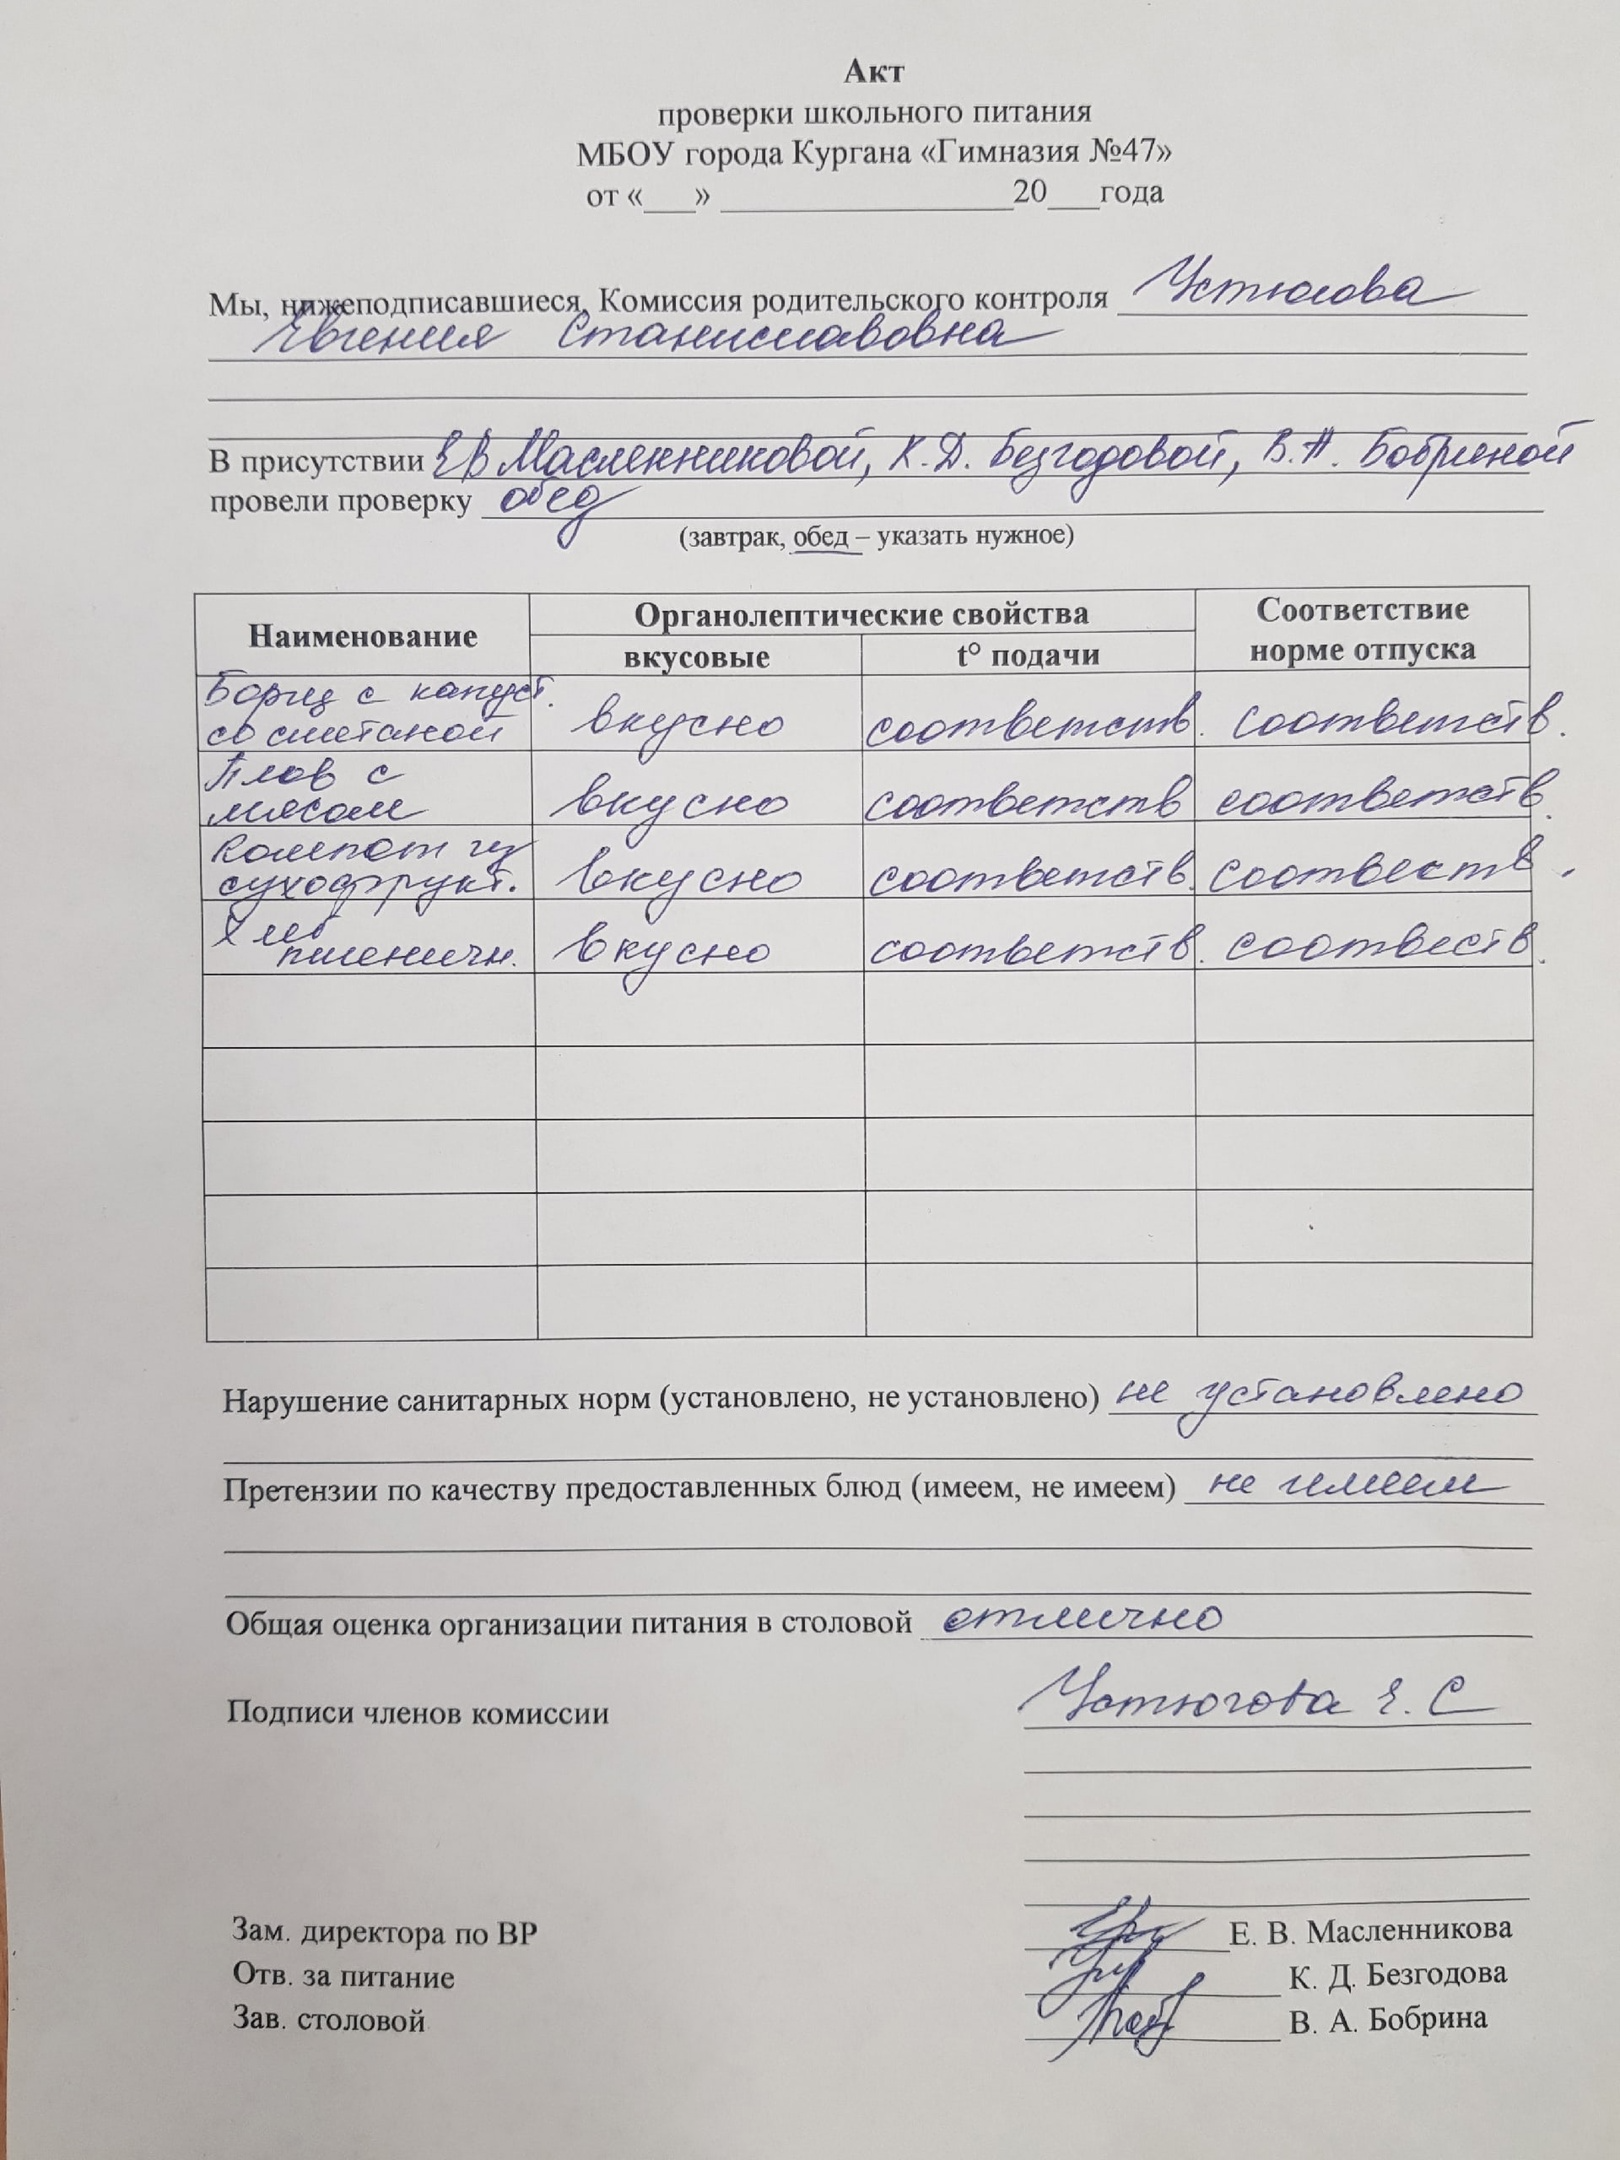 Акт
проверки школьного питания
МБОУ города Кургана «Гимназия №47»
от «___» _________________20___года
Мы, нижеподписавшиеся, Комиссия родительского контроля Устюгова
Евгения Станиславовна
В присутствии Е В Масленниковой, К.Д. Безгодовой, В.А. Бобриной
провели проверку обед
(завтрак, обед – указать нужное)
Наименование Органолептические свойства Соответствие норме отпуска
вкусовые t° подачи
Борщ с капуст. со сметаной вкусно соответств. соответств.
Плов с мясом вкусно соответств соответств.
Компот из сухофрукт. вкусно соответств. соотвеств.
Хлеб пшеничн. вкусно соответств. соотвеств.
Нарушение санитарных норм (установлено, не установлено) не установлено
Претензии по качеству предоставленных блюд (имеем, не имеем) не имеем
Общая оценка организации питания в столовой отлично
Подписи членов комиссии Устюгова Е. С
Зам. директора по ВР Е. В. Масленникова
Отв. за питание К. Д. Безгодова
Зав. столовой В. А. Бобрина